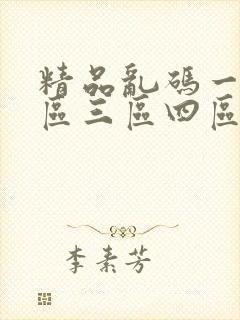 精品亂碼一
區三區四區
李素芳